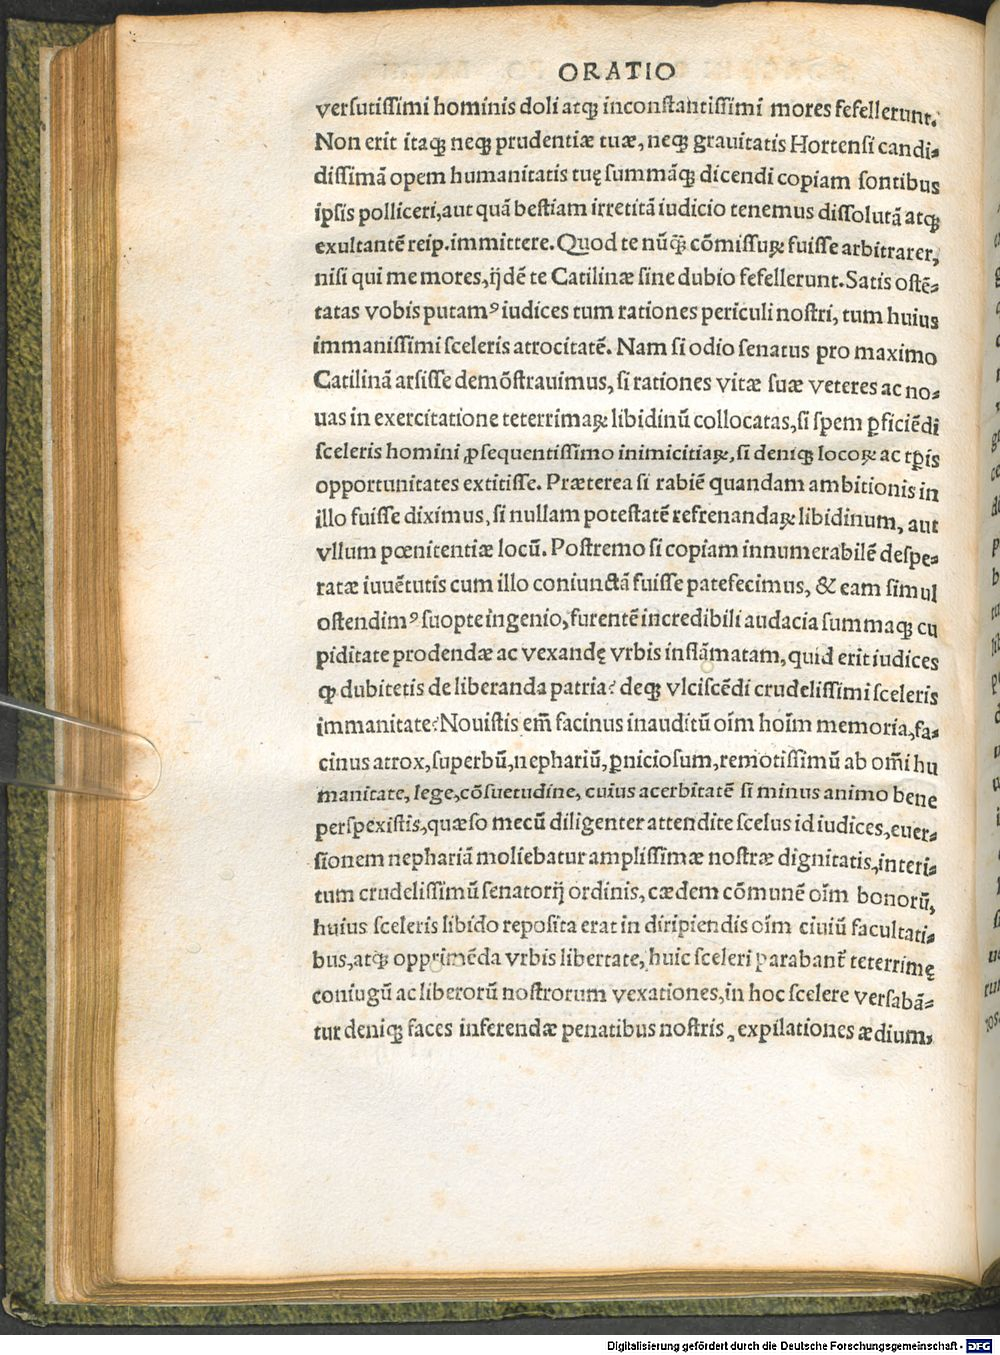 ORATIO
verſutiſſimi hominis doli atqꝫ inconſtantiſſimi mores fefellerunt.
Non erit itaqꝫ neqꝫ prudentiæ tuæ, neqꝫ grauitatis Hortenſi candi-
diſſimā opem humanitatis tuę ſummāqꝫ dicendi copiam ſontibus
ipſis polliceri, aut quā beſtiam irretitā iudicio tenemus diſſolutā atqꝫ
exultantē reip. immittere. Quod te nūqꝫ̄ cōmiſſuꝝ fuiſſe arbitrarer,
niſi qui me mores, ijdē te Catilinæ ſine dubio fefellerunt. Satis oſtē-
tatas vobis putamꝰ iudices tum rationes periculi noſtri, tum huius
immaniſſimi ſceleris atrocitatē. Nam ſi odio ſenatus pro maximo
Catilinā arſiſſe demōſtrauimus, ſi rationes vitæ ſuæ veteres ac no-
uas in exercitatione teterrimaꝝ libidinū collocatas, ſi ſpem ꝑficiēdi
ſceleris homini ꝓſequentiſſimo inimicitiaꝝ, ſi deniqꝫ locoꝝ ac tꝑis
opportunitates extitiſſe. Præterea ſi rabiē quandam ambitionis in
illo fuiſſe diximus, ſi nullam poteſtatē refrenandaꝝ libidinum, aut
vllum pœnitentiæ locū. Poſtremo ſi copiam innumerabilē deſpe-
ratæ iuuētutis cum illo coniunctā fuiſſe patefecimus, & eam ſimul
oſtendimꝰ ſuopte ingenio, furentē incredibili audacia ſummaqꝫ cu
piditate prodendæ ac vexandę vrbis inflāmatam, quid erit iudices
qꝫ dubitetis de liberanda patria? deqꝫ vlciſcēdi crudeliſſimi ſceleris
immanitate? Nouiſtis em̄ facinus inauditū oīm hoīm memoria, fa-
cinus atrox, ſuperbū, nephariū, ꝑnicioſum, remotiſſimū ab om̄i hu
manitate, lege, cōſuetudine, cuius acerbitatē ſi minus animo bene
perſpexiſtis, quæſo mecū diligenter attendite ſcelus id iudices, euer-
ſionem nephariā moliebatur ampliſſimæ noſtræ dignitatis, interi-
tum crudeliſſimū ſenatorij ordinis, cædem cōmunē oīm bonorū,
huius ſceleris libido repoſita erat in diripiendis oīm ciuiū facultati-
bus, atqꝫ opprimēda vrbis libertate, huic ſceleri parabant᷑ teterrimę
coniugū ac liberorū noſtrorum vexationes, in hoc ſcelere verſabā-
tur deniqꝫ faces inferendæ penatibus noſtris, expilationes ædium,
Digitalisierung gefördert durch die Deutsche Forschungsgemeinschaft - DFG